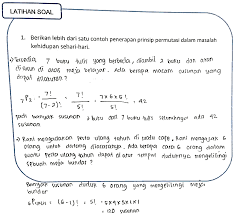 LATIHAN SOAL
1. Berikan lebih dari satu contoh penerapan prinsip permutasi dalam masalah
kehidupan sehari-hari.
Tersedia 7 buku tulis yang berbeda, diambil 2 buku dan akan
disusun di atas meja belajar. Ada berapa macam susunan yang
dapat dilakukan?
7P2 = 7! / (7-2)! = 7! / 5! = 7x6x5! / 5! = 42
Jadi banyak susunan 2 buku dari 7 buku tulis sebanyak 42
Rani mengadakan pesta ulang tahun di suatu cafe, Rani mengajak 6
orang untuk datang Ada berapa cara 6 orang dalam
pesta ulang tahun dapat duduk mengelilingi
sebuah meja bundar?
Banyak susunan duduk 6 orang yang mengelilingi meja
bundar
(6-1)! = 5! = 5x4x3x2x1
= 120 susunan